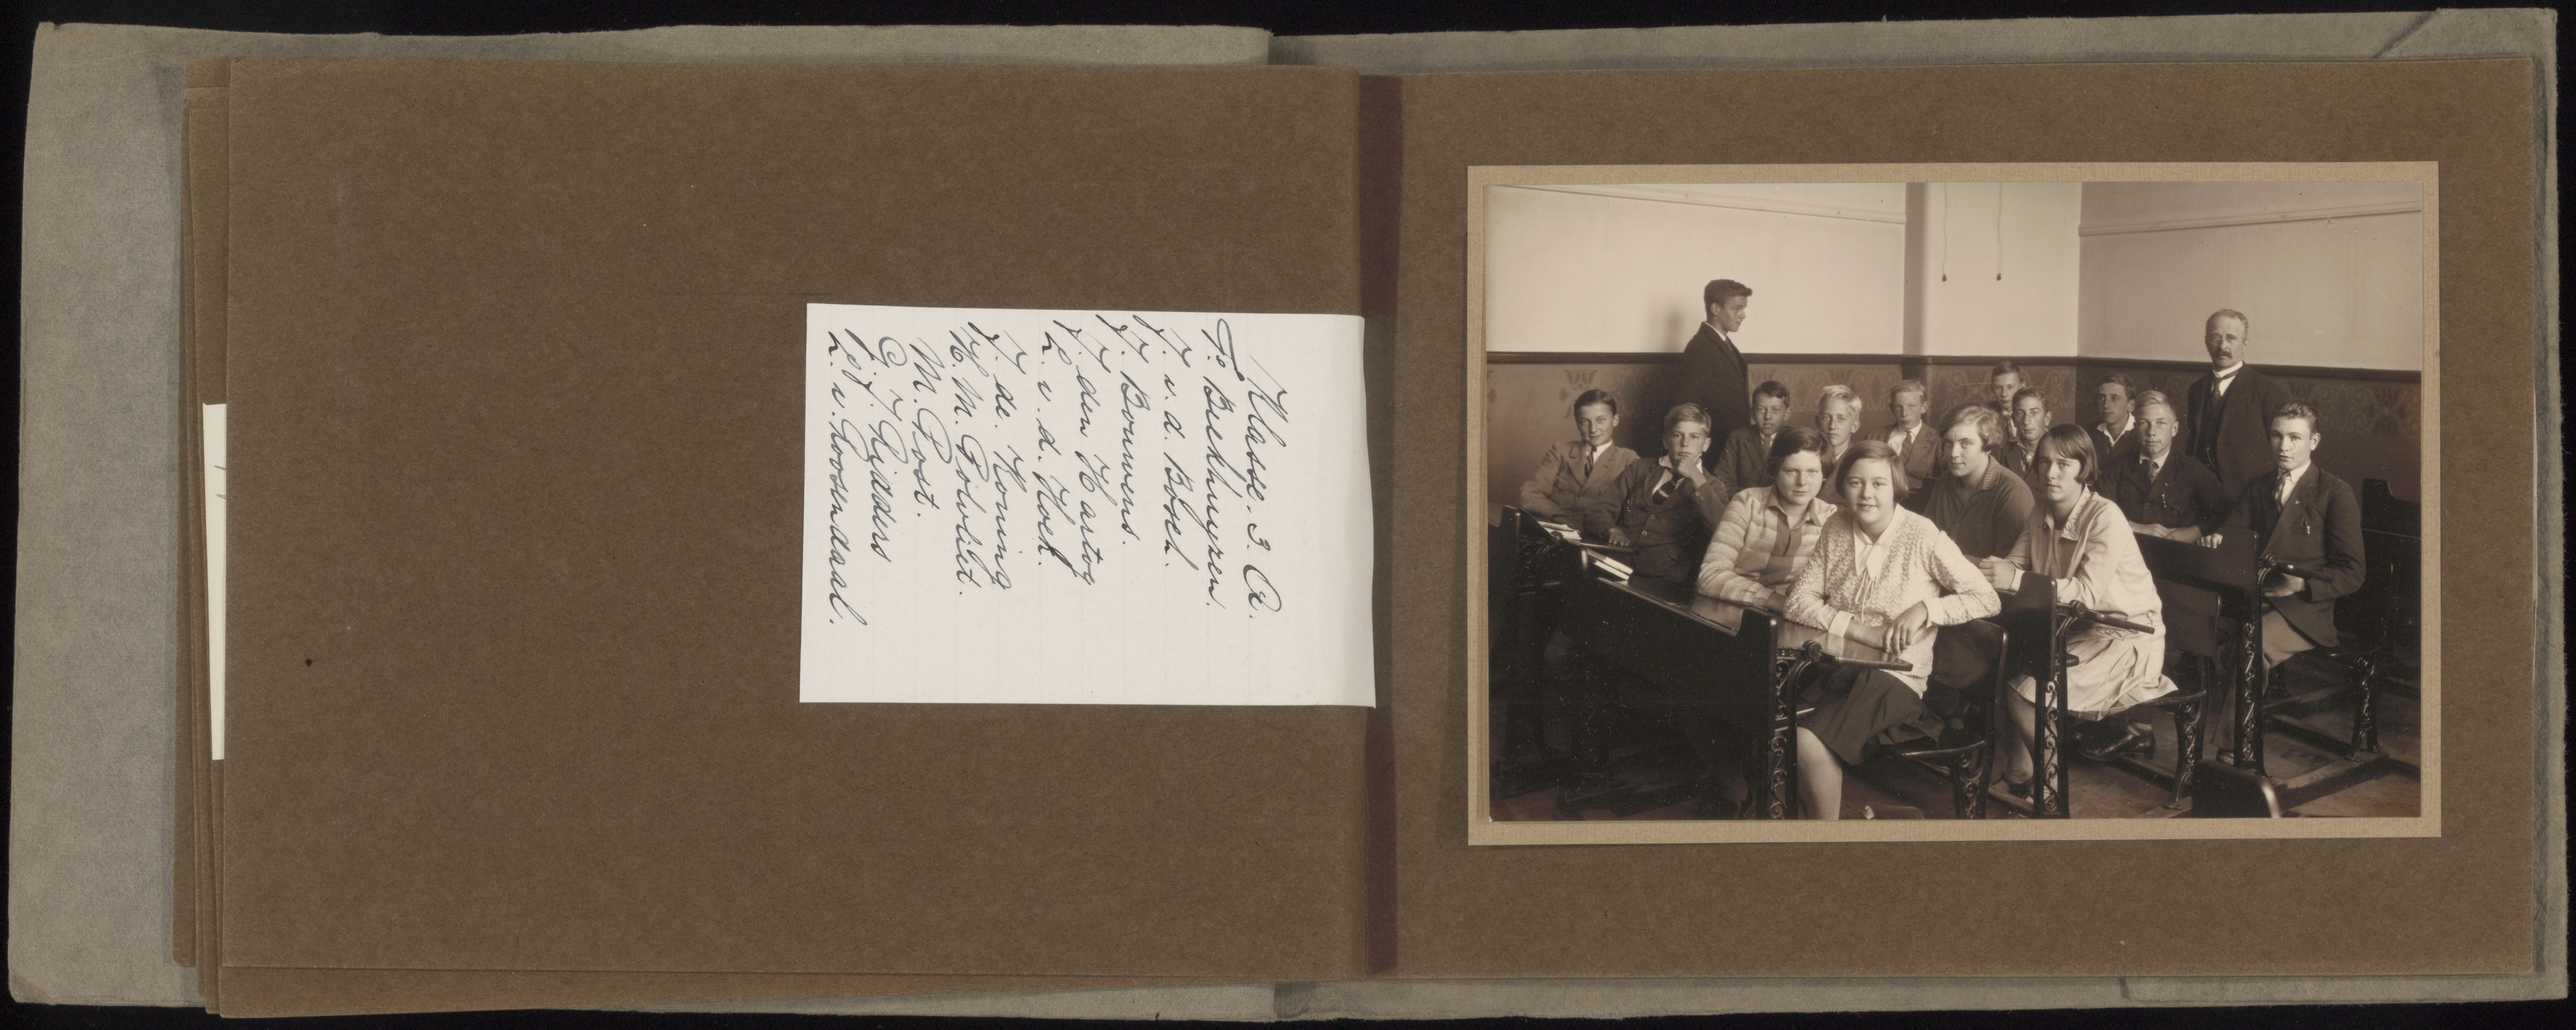 Klasse. 3. A.
T. Beekhuyzen.
J. v. d. Bosch.
J. Bouwens.
J. den Hartog
L. v. d. Hoek.
J. de Koning
H. M. Polvliet.
M. Post.
G. J. Ridders
L. v. Roosendaal.